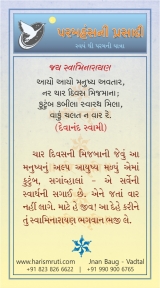 પરમહંસની પ્રસાદી
સ્વયં થી પરમની યાત્રા
જય સ્વામિનારાયણ
આયો આયો મનુષ્ય અવતાર,
નર ચાર દિવસ મિજમાના;
કુટુંબ કબીલા સ્વારથ મિલા,
વાકું ચલત ન વાર રે.
(દેવાનંદ સ્વામી)
ચાર દિવસની મિજબાની જેવું આ
મનુષ્યનું અલ્પ આયુષ્ય માપ્યું એમાં
કુટુંબ, સગાંવ્હાલાં - એ સર્વેની
સ્વાર્થની સગાઈ છે. એને જતાં વાર
નહીં લાગે. માટે હે જીવ! આ દેહે કરીને
તું સ્વામિનારાયણ ભગવાન ભજી લે.
www.harismruti.com
Jnan Baug - Vadtal
+91 823 826 6622
+91 990 900 6765